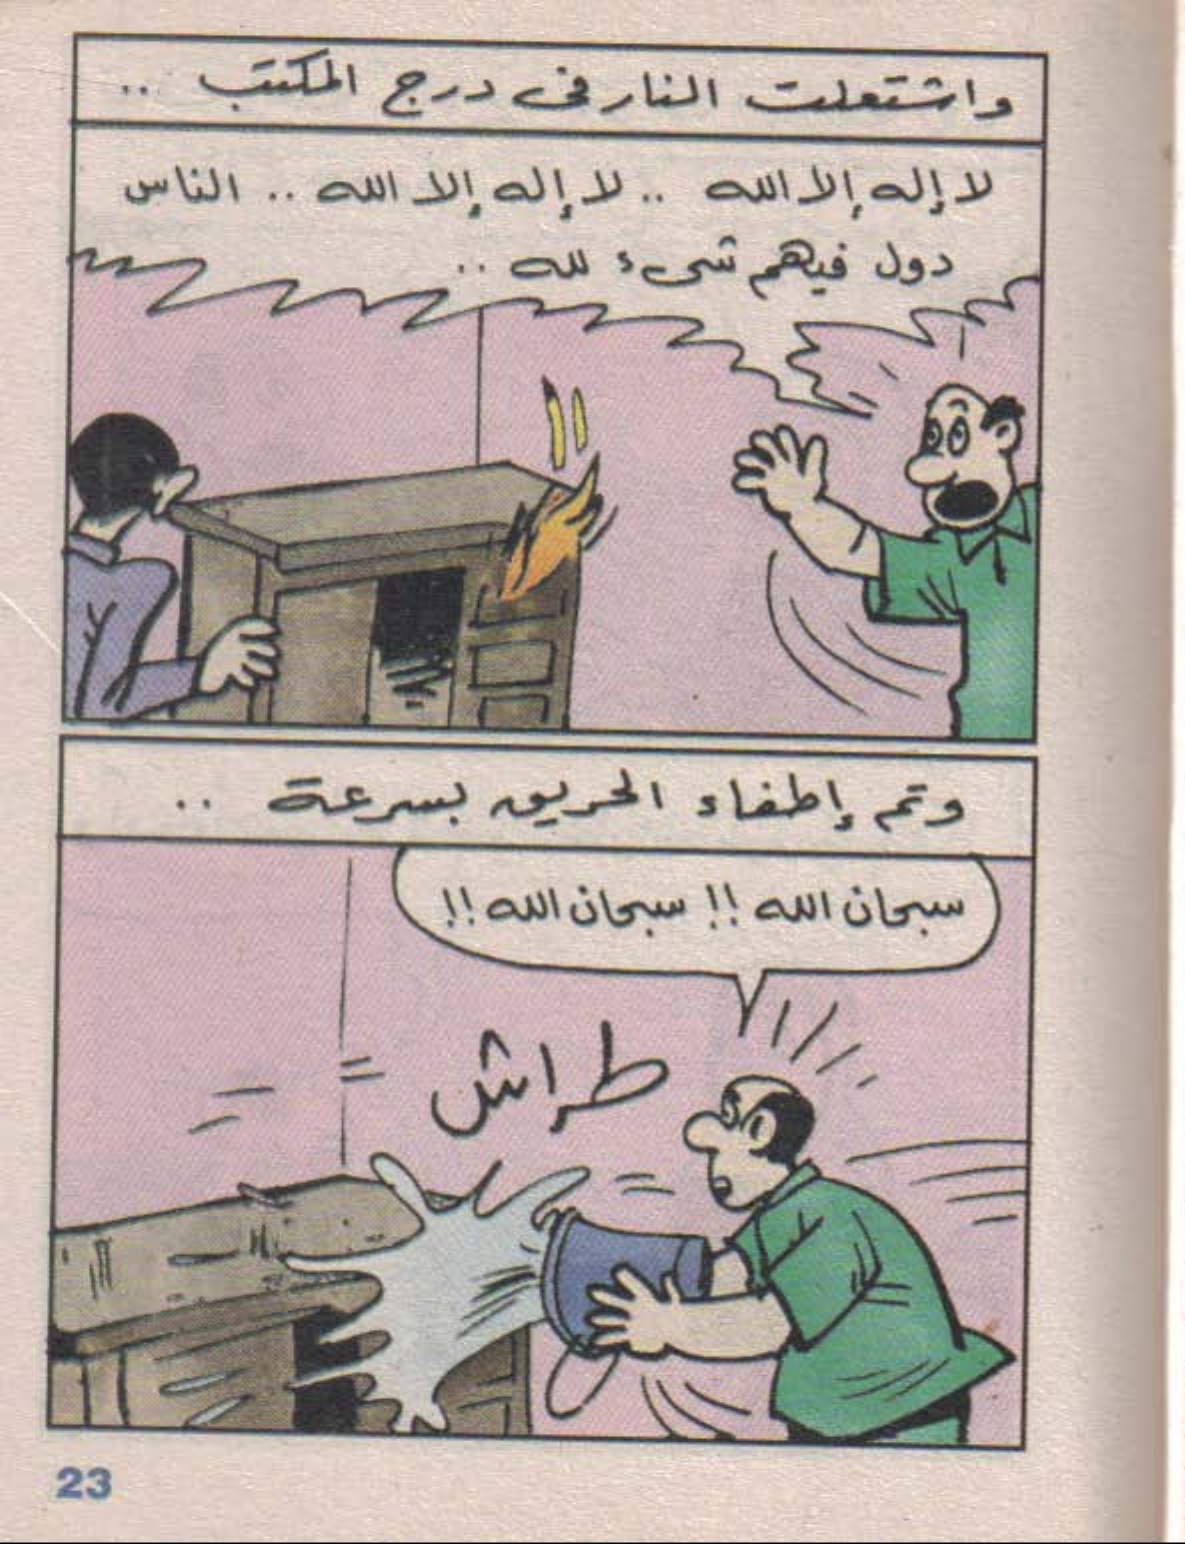 واشتعلت النار فى درج المكتب ..
لا إله إلا الله .. لا إله إلا الله .. الناس
دول فيهم شىء لله ..
وتم إطفاء الحريق بسرعة ..
سبحان الله !! سبحان الله !!
طراش
23